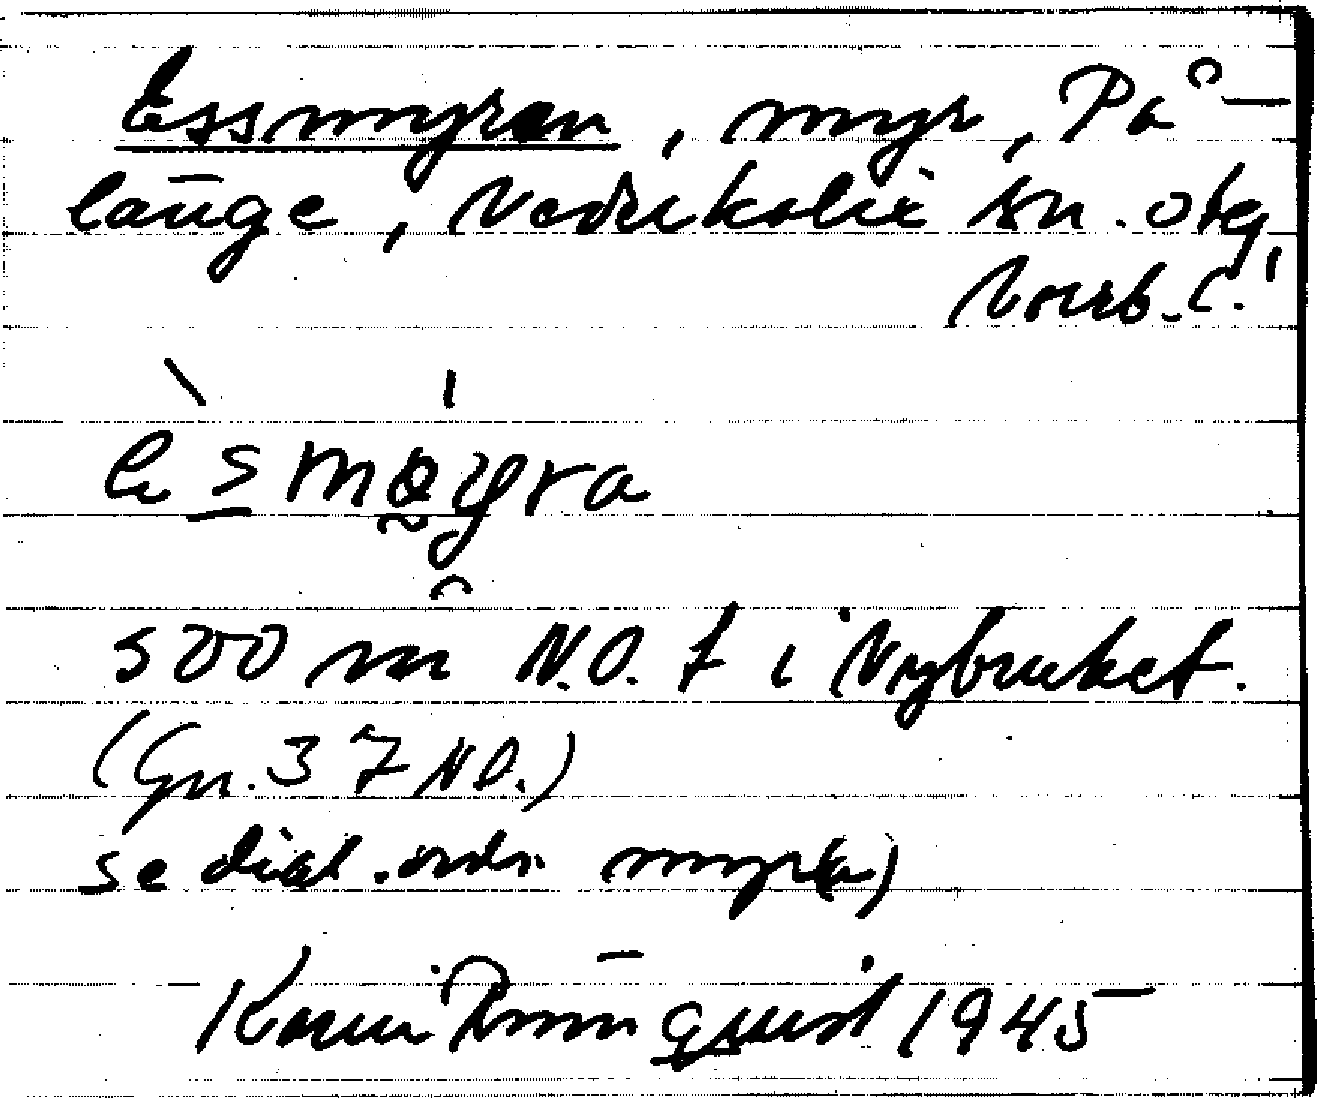 Essmyran, myr, På-
länge, Nederkalix sn. o tg,
Norrb. l.
esmøyra
500 m N.O. f i Nybruket.
(Gn. 37 NO.)
se dial. ordr. myr(a)
Karin Rönnquist 1945